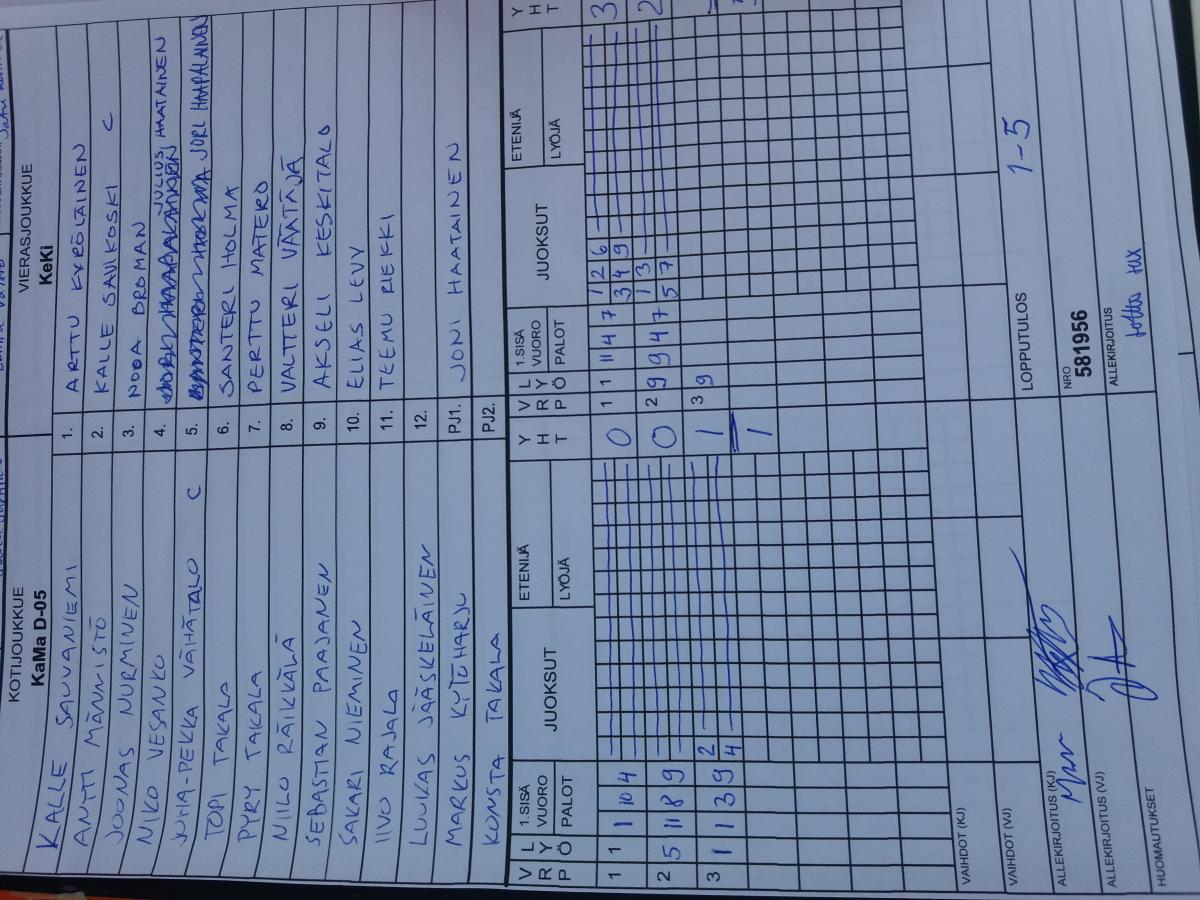 KOTIJOUKKUE
KaMa D-05
KALLE SAUVANIEMI
ANTTI MÄNNISTÖ
JOONAS NURMINEN
NIKO VESANKO
JUHA-PEKKA VÄHÄTALO C
TOPI TAKALA
PYRY TAKALA
NIILO RÄIKKÄLÄ
SEBASTIAN PAAJANEN
SAKARI NIEMINEN
IIVO RAJALA
LUUKAS JÄÄSKELÄINEN
MARKUS KYTÖHARJU
KONSTA TAKALA
VIERASJOUKKUE
KeKi
1. ARTTU KYRÖLÄINEN
2. KALLE SAVIKOSKI C
3. NOOA BROMAN
4. JULIUS HAATAINEN
5. JORI HAAPALAINEN
6. SANTERI HOLMA
7. PERTTU MATERO
8. VALTTERI VÄÄTÄJÄ
9. AKSELI KESKITALO
10. ELIAS LEVY
11. TEEMU RIEKKI
12.
PJ1. JONI HAATAINEN
PJ2.
VRP LYÖ 1.SISÄ VUORO PALOT JUOKSUT ETENIJÄ LYÖJÄ YHT
1 1 1 10 4 0
2 5 11 8 9 0
3 1 1 3 9 2 4 1
1
VRP LYÖ 1.SISÄ VUORO PALOT JUOKSUT ETENIJÄ LYÖJÄ YHT
1 1 11 4 7 1 2 6 3
3 4 9
2 9 9 4 7 1 3 2
5 7
3 9
VAIHDOT (KJ)
VAIHDOT (VJ)
LOPPUTULOS 1-5
ALLEKIRJOITUS (KJ)
NRO
581956
ALLEKIRJOITUS (VJ)
ALLEKIRJOITUS
HUOMAUTUKSET